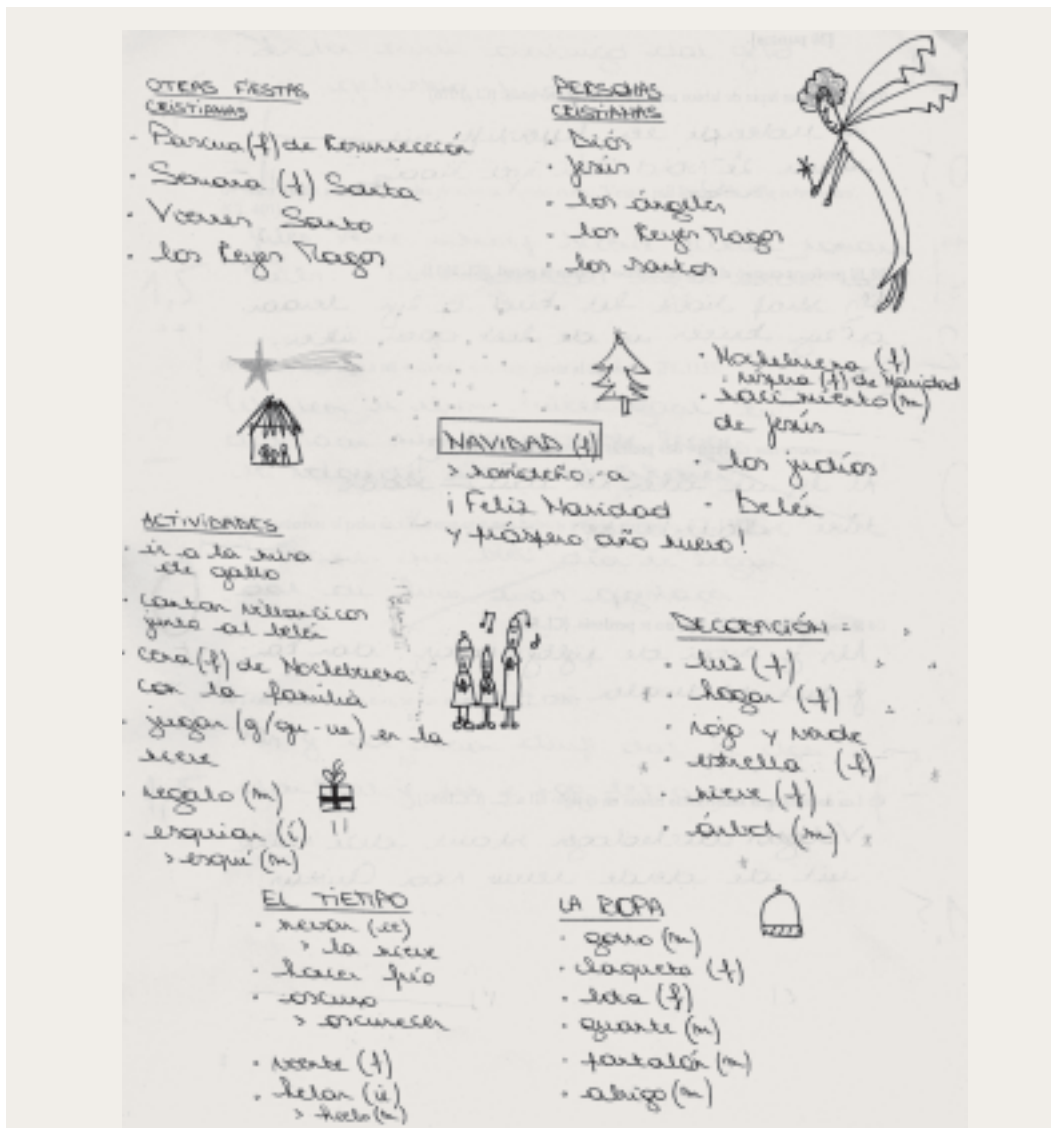 OTRAS FIESTAS
CRISTIANAS
· Pascua (f) de Resurrección
· Semana (f) Santa
· Viernes Santo
· los Reyes Magos
PERSONAS
CRISTIANAS
· Dios
· Jesús
· los ángeles
· los Reyes Magos
· los santos
· Nochebuena (f)
· víspera (f) de Navidad
· nacimiento (m)
de Jesús
· los judíos
· Belén
NAVIDAD (f)
> navideño, -a
¡Feliz Navidad
y próspero año nuevo!
ACTIVIDADES
· ir a la misa
de gallo
· cantar villancicos
junto al belén
· cena (f) de Nochebuena
con la familia
· jugar (g/gu-ue) en la
nieve
· regalo (m)
· esquiar (í)
> esquí (m)
DECORACIÓN
· luz (f)
· hogar (f)
· rojo y verde
· estrella (f)
· nieve (f)
· árbol (m)
EL TIEMPO
· nevar (ie)
> la nieve
· hacer frío
· oscuro
> oscurecer
· (f)
· helar (ie)
> hielo (m)
LA ROPA
· gorro (m)
· chaqueta (f)
· bota (f)
· guante (m)
· pantalón (m)
· abrigo (m)